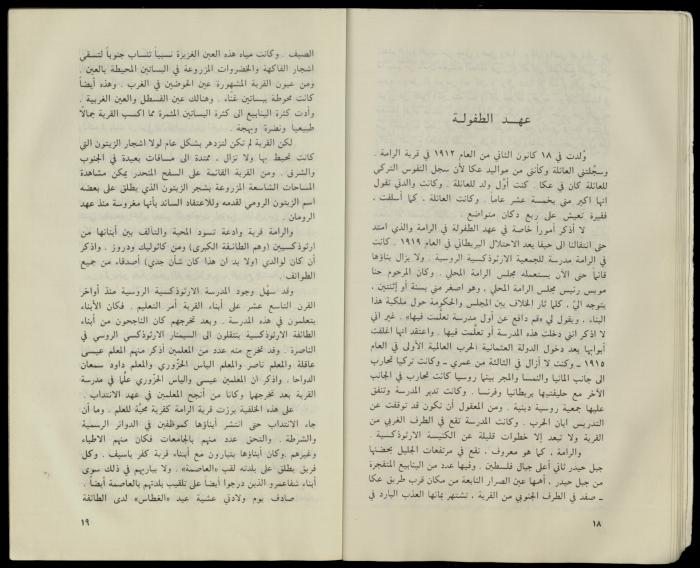 عهد الطفولة
وُلدت في ١٨ كانون الثاني من العام ١٩١٢ في قرية الرامة .
وسجّلتني العائلة وكأنني من مواليد عكا لأن سجل النفوس التركي
للعائلة كان في عكا . كنت أوّل ولد للعائلة . وكانت والدتي تقول
انها اكبر مني بخمسة عشر عاماً . وكانت العائلة ، كما أسلفت ،
فقيرة تعيش على ربع دكان متواضع .
لا أذكر أموراً خاصة في عهد الطفولة في الرامة والذي امتد
حتى انتقالنا الى حيفا بعد الاحتلال البريطاني في العام ١٩١٩ . كانت
في الرامة مدرسة للجمعية الارثوذكسية الروسية . ولا يزال بناؤها
قائماً حتى الآن يستعمله مجلس الرامة المحلي . وكان المرحوم حنا
مويس رئيس مجلس الرامة المحلي ، وهو اصغر مني بسنة أو إثنتين ،
يتوجه اليّ ، كلما ثار الخلاف بين المجلس والحكومة حول ملكية هذا
البناء ، ويقول لي «قم دافع عن أول مدرسة تعلّمت فيها» . غير اني
لا اذكر انني دخلت هذه المدرسة أو تعلّمت فيها . واعتقد انها اغلقت
أبوابها بعد دخول الدولة العثمانية الحرب العالمية الأولى في العام
١٩١٥ ـ وكنت لا أزال في الثالثة من عمري ـ وكانت تركيا تحارب
الى جانب المانيا والنمسا والمجر بينما روسيا كانت تحارب في الجانب
الآخر مع حليفتيها بريطانيا وفرنسا . وكانت تدير المدرسة وتنفق
عليها جمعية روسية دينية . ومن المعقول أن تكون قد توقفت عن
التدريس ابان الحرب . وكانت المدرسة تقع في الطرف الغربي من
القرية ولا تبعد إلا خطوات قليلة عن الكنيسة الارثوذكسية .
والرامة ، كما هو معروف ، تقع في مرتفعات الجليل يحضنها
جبل حيدر ثاني أعلى جبال فلسطين . وفيها عدد من الينابيع المتفجرة
من جبل حيدر ، أهمها عين الصرار النابعة من مكان قرب طريق عكا
ـ صفد في الطرف الجنوبي من القرية ، تشتهر بمائها العذب البارد في
١٨
الصيف . وكانت مياه هذه العين الغزيرة نسبياً تنساب جنوباً لتسقي
اشجار الفاكهة والخضروات المزروعة في البساتين المحيطة بالعين .
ومن عيون القرية المشهورة عين الحوضين في الغرب . وهذه أيضاً
كانت محوطة ببساتين غنّاء . وهنالك عين القسطل والعين الغربية .
وأدت كثرة الينابيع الى كثرة البساتين المثمرة مما اكسب القرية جمالاً
طبيعيا ونضرة وبهجة .
لكن القرية لم تكن لتزدهر بشكل عام لولا اشجار الزيتون التي
كانت تحيط بها ولا تزال ، ممتدة الى مسافات بعيدة في الجنوب
والشرق . ومن القرية القائمة على السفح المنحدر يمكن مشاهدة
المساحات الشاسعة المزروعة بشجر الزيتون الذي يطلق على بعضه
اسم الزيتون الرومي لقدمه وللاعتقاد السائد بأنها مغروسة منذ عهد
الرومان .
والرامة قرية وادعة تسود المحبة والتآلف بين أبنائها من
ارثوذكسيين (وهم الطائفة الكبرى) ومن كاثوليك ودروز . واذكر
أن كان لوالدي (ولا بد ان هذا كان شأن جدي) أصدقاء من جميع
الطوائف .
وقد سهّل وجود المدرسة الارثوذكسية الروسية منذ أواخر
القرن التاسع عشر على أبناء القرية أمر التعليم . فكان الأبناء
يتعلمون في هذه المدرسة . وبعد تخرجهم كان الناجحون من أبناء
الطائفة الارثوذكسية ينتقلون الى السيمنار الارثوذكسي الروسي في
الناصرة . وقد تخرج منه عدد من المعلمين أذكر منهم المعلم عيسى
عاقلة والمعلم ناصر والمعلم الياس الخزّوري والمعلم داود سمعان
الدواحا . واذكر ان المعلمين عيسى والياس الخزّوري علّما في مدرسة
القرية بعد تخرجهما وكانا من أنجح المعلمين في عهد الانتداب .
على هذه الخلفية برزت قرية الرامة كقرية محبّة للعلم . وما أن
جاء الانتداب حتى انتشر أبناؤها كموظفين في الدوائر الرسمية
والشرطة . والتحق عدد منهم بالجامعات فكان منهم الاطباء
وغيرهم . وكان أبناؤها يتبارون مع أبناء قرية كفر ياسيف . وكل
فريق يطلق على بلدته لقب «العاصمة» . ولا يباريهم في ذلك سوى
أبناء شفاعمرو الذين درجوا أيضاً على تلقيب بلدتهم بالعاصمة أيضاً .
صادف يوم ولادتي عشية عيد «الغطاس» لدى الطائفة
١٩